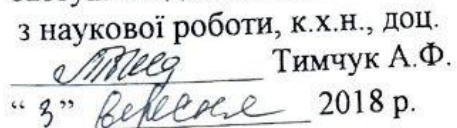 з наукової роботи, к.х.н., доц.
Тимчук А.Ф.
“ 3 ” вересня 2018 р.